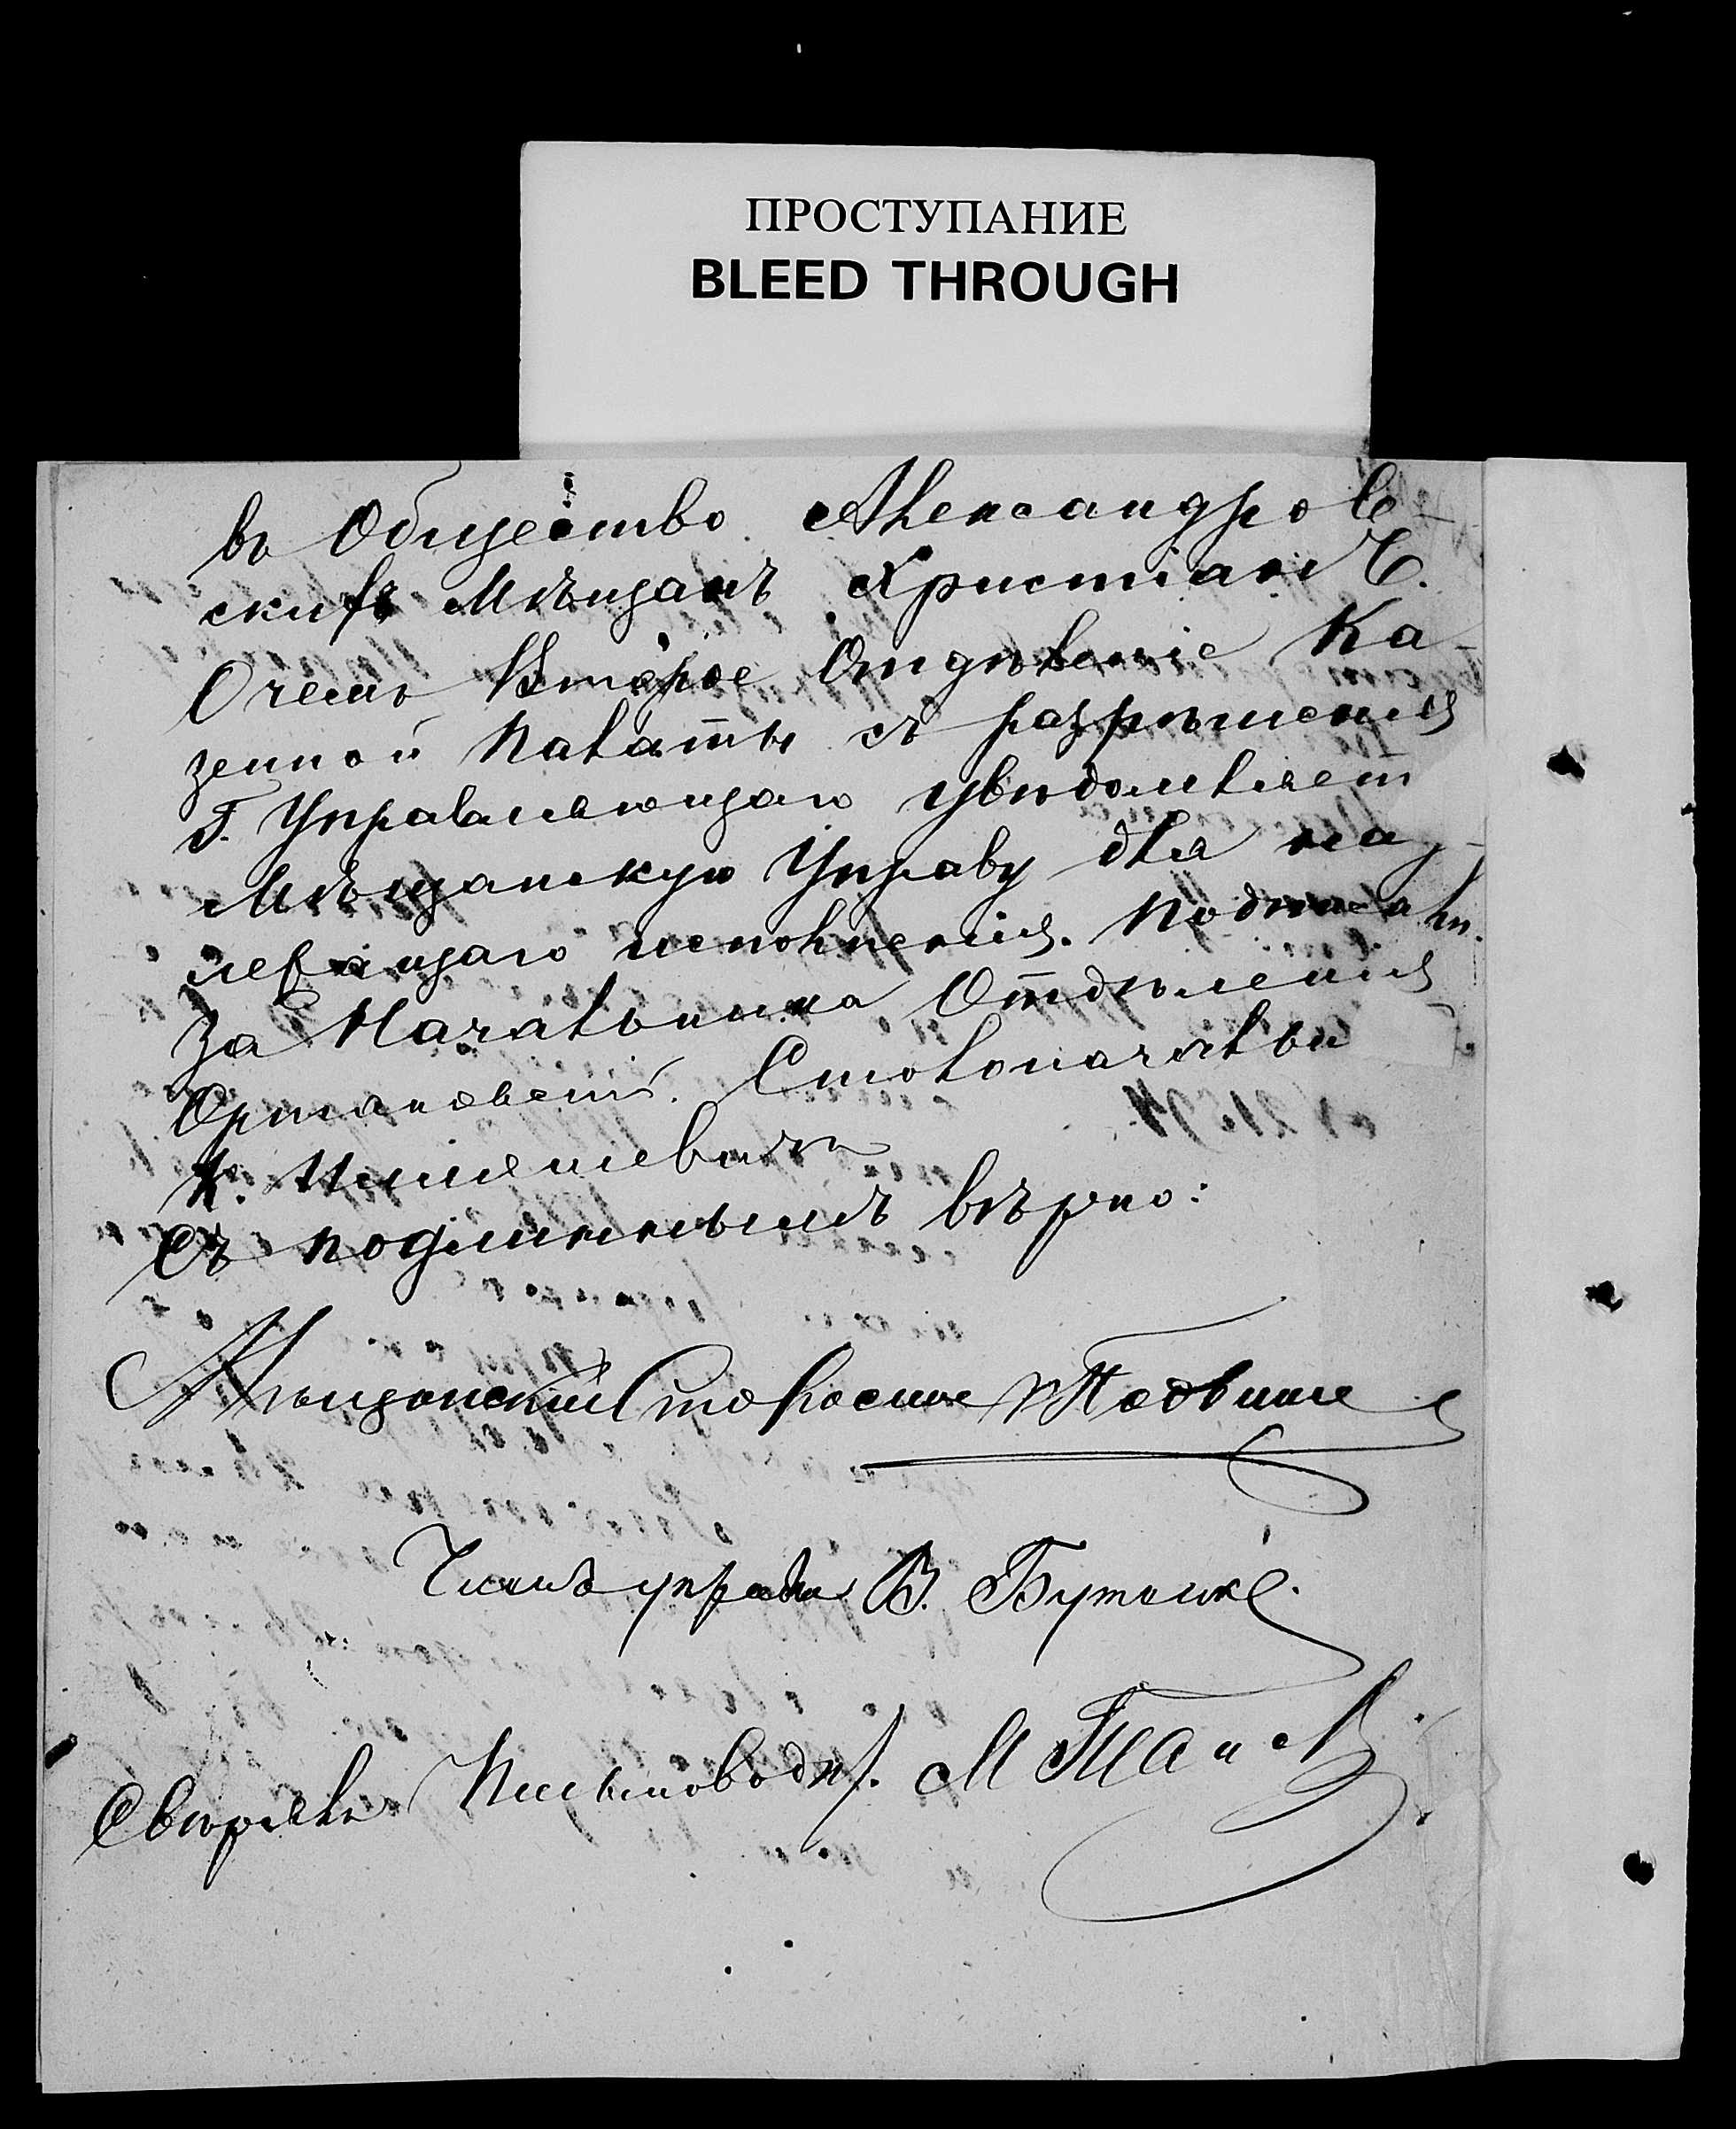 ПРОСТУПАНИЕ
BLEED THROUGH
въ Общество Александров-
скихъ Мѣщанъ Христіанъ.
О чемъ Второе Отдѣленіе Ка-
зенной Палаты съ разрѣшенія
Г. Управляющаго увѣдомляетъ
Мѣщанскую Управу для над-
лежащаго исполненія. Подписали.
За Начальника Отдѣленія
Столоначальн
К.
Съ подлиннымъ вѣрно:
Мѣщанскій Староста
Членъ управы В. Бутенко
Свѣрялъ Письмоводит. М